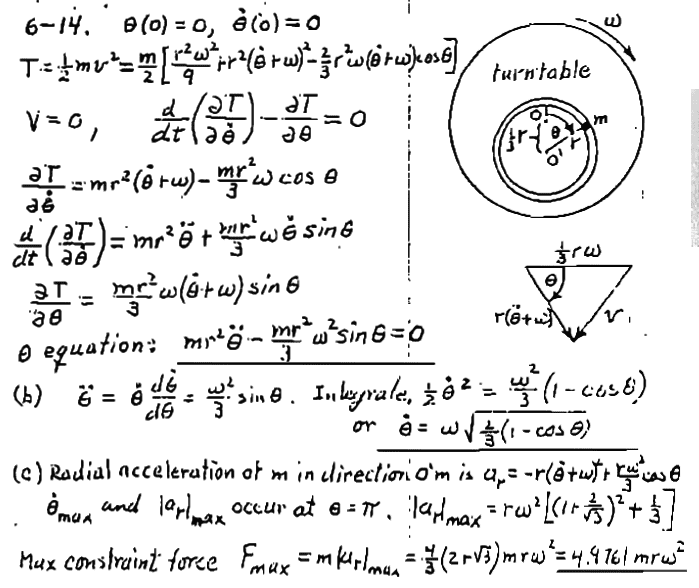 6-14. θ(0) = 0, θ̇(0) = 0
T = ½mv² = m/2 [r²ω²/9 + r²(θ̇+ω)² - ⅔r²ω(θ̇+ω)cosθ]
V = 0, d/dt(∂T/∂θ̇) - ∂T/∂θ = 0
∂T/∂θ̇ = mr²(θ̇+ω) - mr²/3 ω cos θ
d/dt(∂T/∂θ̇) = mr²θ̈ + mr²/3 ωθ̇ sinθ
∂T/∂θ = mr²/3 ω(θ̇+ω) sin θ
θ equation: mr²θ̈ - mr²/3 ω² sin θ = 0
(b) θ̈ = θ̇ dθ̇/dθ = ω²/3 sin θ. Integrate, ½ θ̇² = ω²/3 (1 - cos θ)
or θ̇ = ω√(⅔(1 - cos θ))
(c) Radial acceleration of m in direction O'm is aᵣ = -r(θ̇+ω)² + rω²/3 cos θ
θ̇max and |aᵣ|max occur at θ = π. |aᵣ|max = rω²[(1+2/√3)² + 1/3]
Max constraint force Fmax = m|aᵣ|max = 4/3(2+√3)mrω² = 4.9761 mrω²
ω
turntable
O
m
θ
⅓r
r
O'
⅓rω
θ
r(θ̇+ω)
v